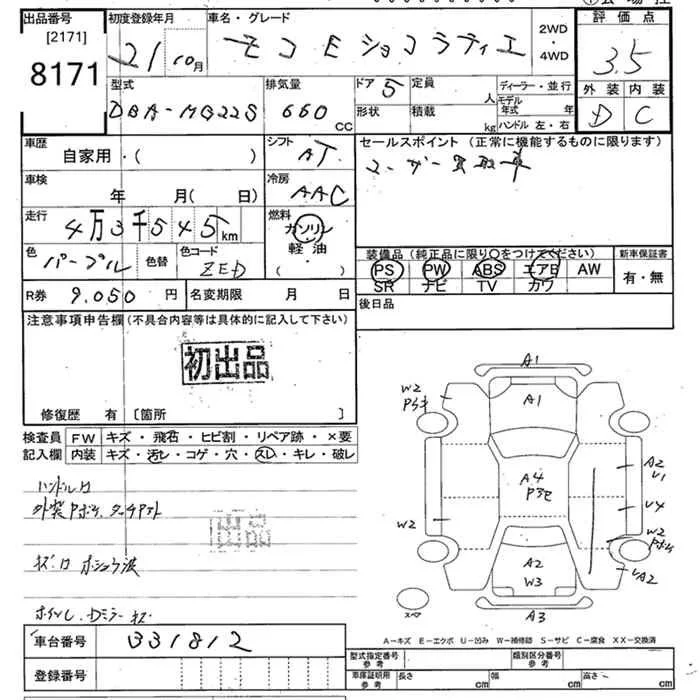 出品番号 初度登録年月 車名・グレード 評価点
[2171]
8171
21 10月 モコ E ショコラティエ 2WD・4WD 3.5
型式 排気量 ドア 5 定員 人 ディーラー・並行 外装 内装
DBA-MG22S 660 CC 形状 積載 kg モデル年式 年 ハンドル 左・右 D C
車歴 シフト セールスポイント (正常に機能するものに限ります)
自家用・( ) AT ユーザー買取車
車検 冷房
年 月( 日) AAC
走行 燃料
4万3千545km ガソリン・軽油・( )
色 パープル 色替 色コード ZED
装備品 (純正品に限り〇をつけてください) 新車保証書
PS PW ABS エアB AW 有・無
SR ナビ TV カワ
R券 9,050 円 名変期限 月 日 後日品
注意事項申告欄 (不具合内容等は具体的に記入して下さい)
初出品
修復歴 有 [箇所 ]
検査員記入欄 FW キズ・飛石・ヒビ割・リペア跡・×要
内装 キズ・汚レ・コゲ・穴・スレ・キレ・破レ
出品
A1
W2
A1
A4
A2
U1
U4
W2
W2
A2
W3
UA2
スペア
A3
A-キズ E-エクボ U-凹み W-補修跡 S-サビ C-腐食 XX-交換済
車台番号 331812
登録番号
型式指定番号 参考 類別区分番号 参考
車庫証明用 参考 長さ cm 幅 cm 高さ cm